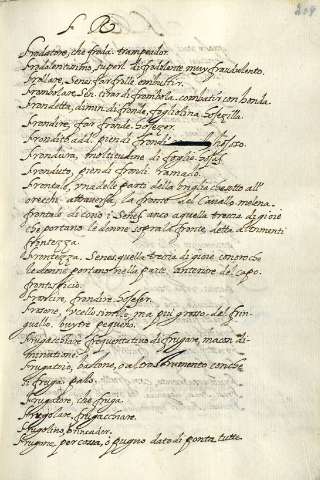 209
F R
Frodatore, che froda. trampeador.
Frodolentissimo, superl. di frodolente muy fraudolento.
Frollare, Senes. far frollo
Frombolare, Sen. tirar di frombola. combatir con honda.
Frondetta, dimin. di fronda, fogliolina. hogezilla.
Frondire, far fronde. hogeger.
Frondito add. pien di frondi hojoso.
Frondura, moltitudine di foglie. hojas
Fronduto, pien di frondi ramado.
Frontale, una delle parti della briglia che sotto all'
orecchi attraversa la fronte del Cavallo melena.
frontale dicono i Senesi anco aquella trezzia di gioie
che portano le donne sopra la fronte, detta altrimenti
frontezza.
Frontezza. Senes. quella trezzia di gioie con oro che
le donne portano nella parte anteriore del capo.
frontispicio.
Frosone, uccello simile, ma più grosso del frin-
guello. buytre pequeño.
Frugacchiare frequentativo di frugare,
diminutione.
Frugatoio, bastone, o altro strumento con che
si fruga. palo.
Frugatore, che fruga.
Frugolare, frugacchiare.
Frugolino,
Frugone percossa, o pugno dato di ponta